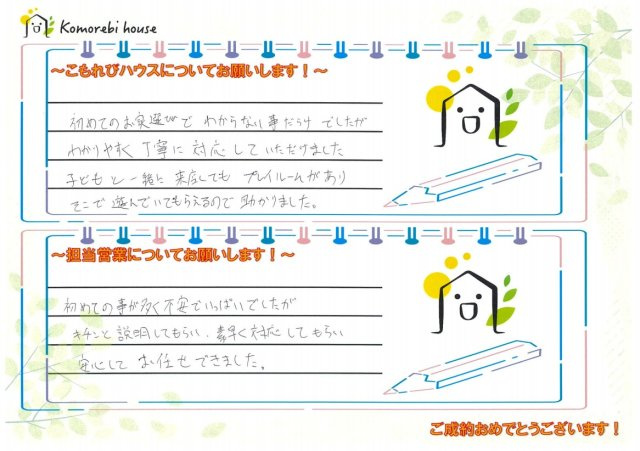 Komorebi house
~こもれびハウスについてお願いします！~
初めてのお家選びで わからない事だらけ でしたが
わかりやすく 丁寧に 対応して いただけました
子どもと 一緒に 来店しても プレイルームがあり
そこで 遊んでいてもらえるので 助かりました。
~担当営業についてお願いします！~
初めての事が多く 不安でいっぱいでしたが
キチンと 説明してもらい、素早く 対応してもらい
安心して お任せできました。
ご成約おめでとうございます！